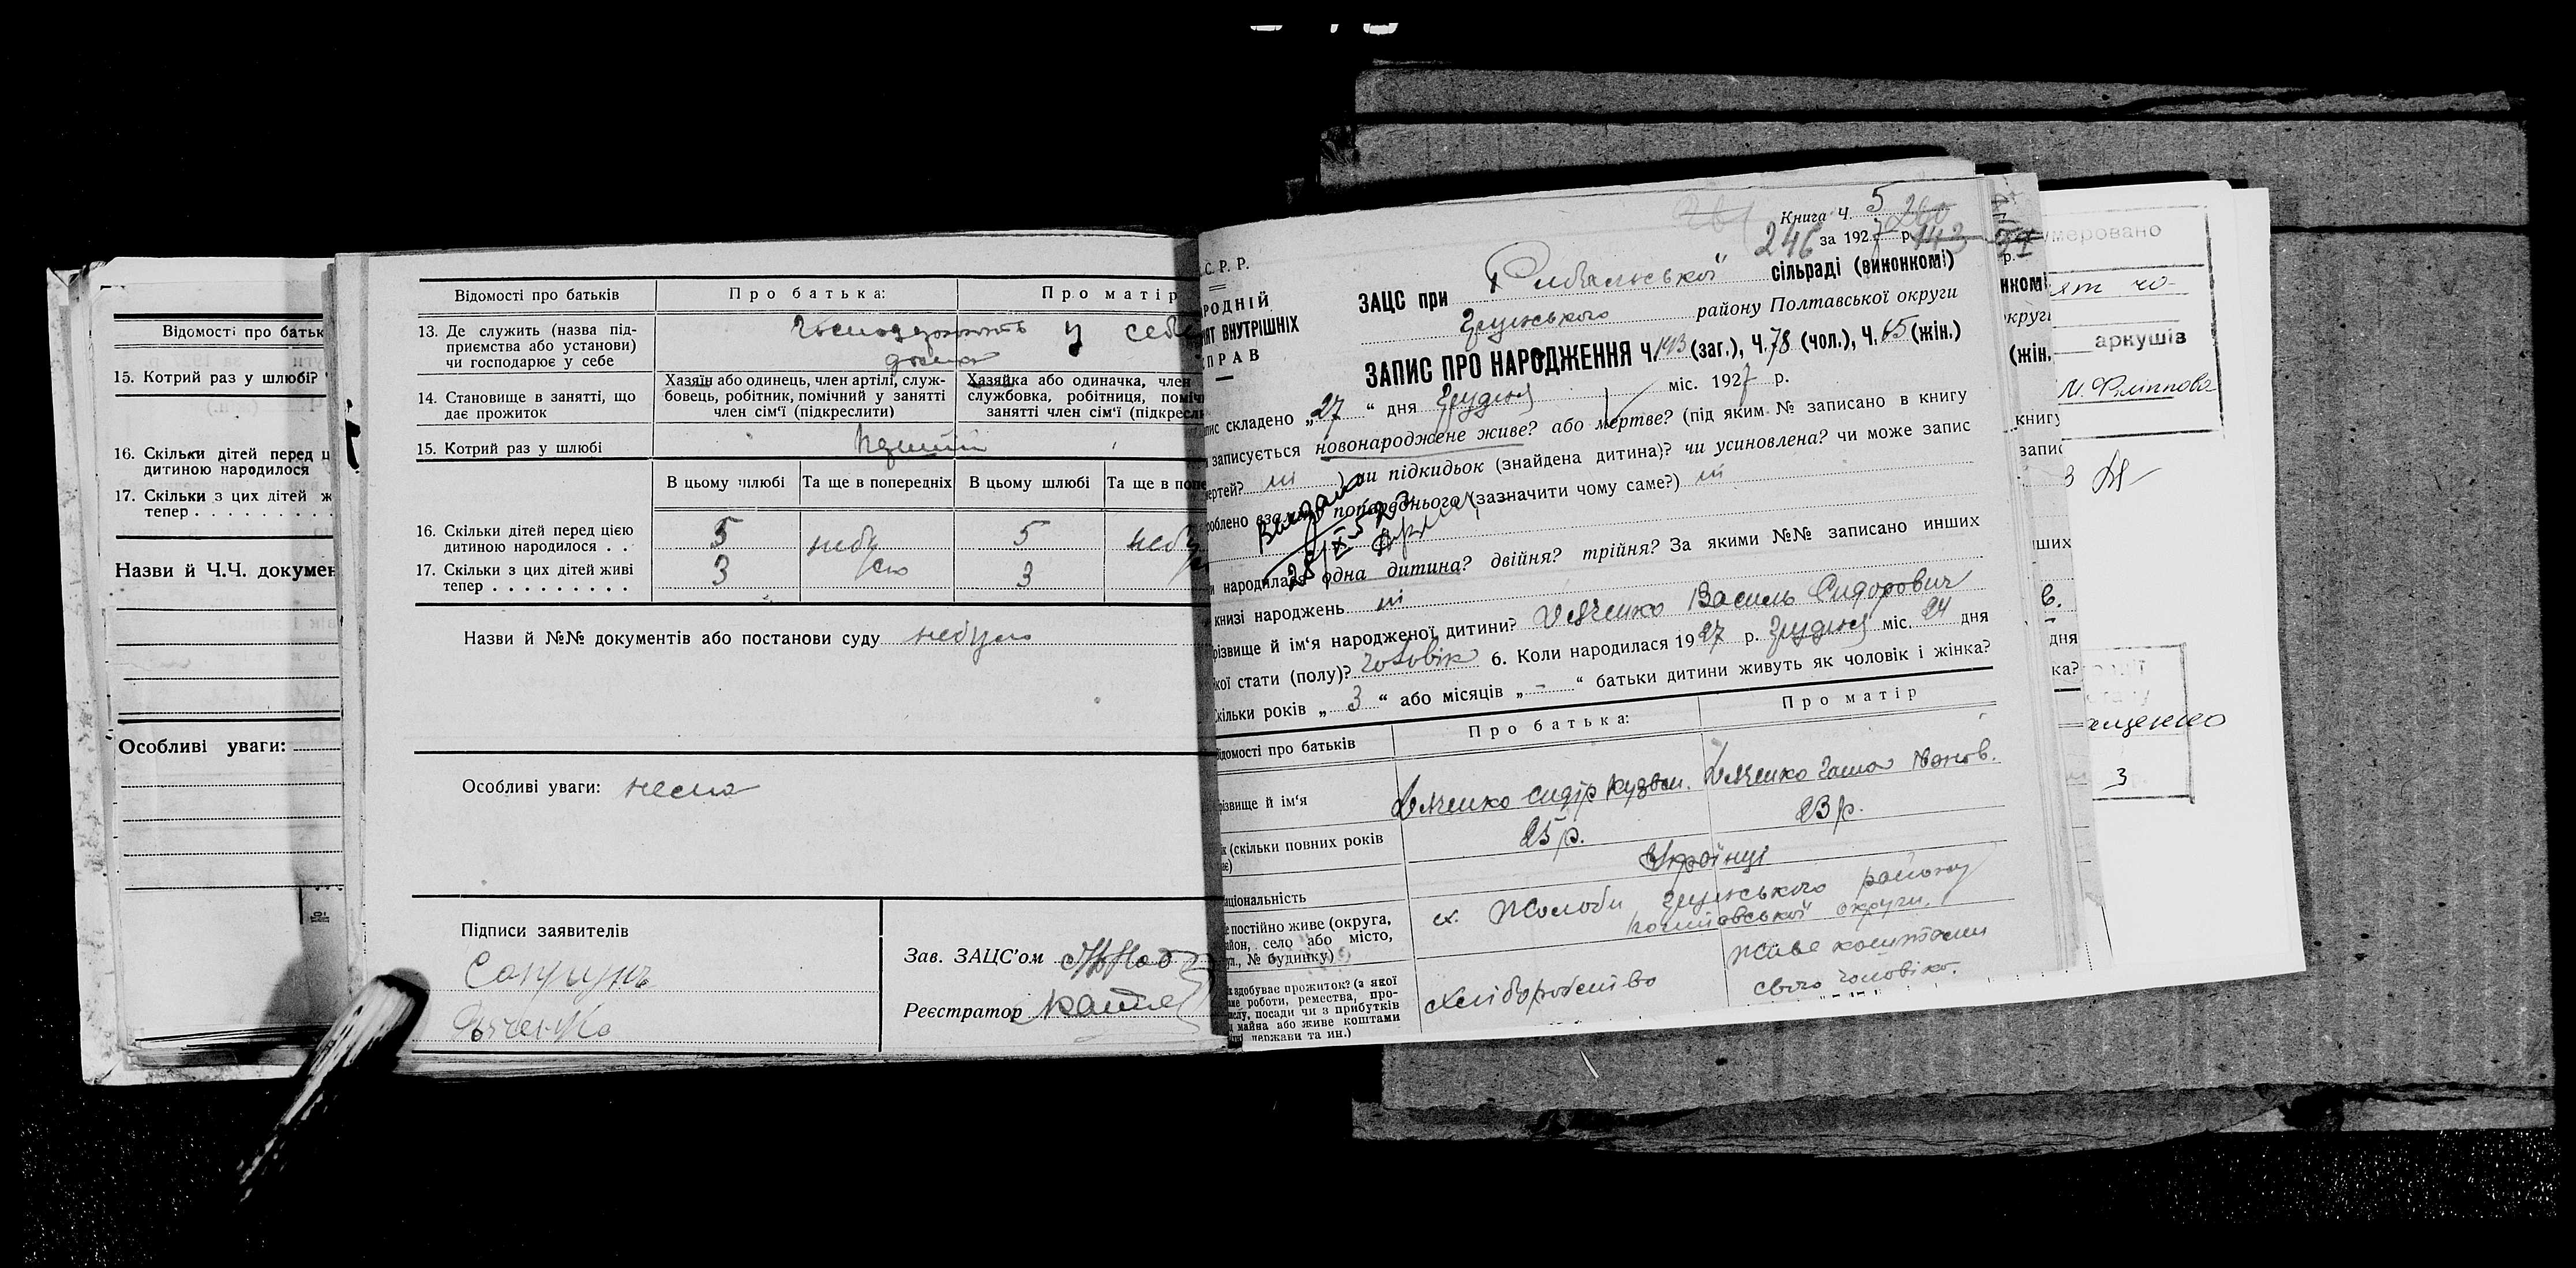 Відомості про батьк
15. Котрий раз у шлюбі?
16. Скільки дітей перед ц
дитиною народилося
17. Скільки з цих дітей ж
тепер
Назви й Ч.Ч. докумен
Особливі уваги:
Відомості про батьків
Про батька:
Про матір
13. Де служить (назва під-
приємства або установи)
чи господарює у себе
у себе
дома
14. Становище в занятті, що
дає прожиток
Хазяїн або одинець, член артілі, служ-
бовець, робітник, помічний у занятті
член сім'ї (підкреслити)
Хазяйка або одиначка, член
службовка, робітниця, поміч
занятті член сім'ї (підкресл
15. Котрий раз у шлюбі
В цьому шлюбі
Та ще в попередніх
В цьому шлюбі
Та ще в попе
16. Скільки дітей перед цією
дитиною народилося . .
5
небу
5
небу
17. Скільки з цих дітей живі
тепер
3
ло
3
Назви й №№ документів або постанови суду небуло
Особливі уваги: нема
Підписи заявителів
Дяченко
Зав. ЗАЦС'ом
Реєстратор
Книга Ч. 5
246 за 1927 р. 143
С. Р. Р.
РОДНІЙ
ЯТ ВНУТРІШНІХ
ПРАВ
ЗАЦС при Рибальської сільраді (виконкомі)
Грунського району Полтавської округи
ЗАПИС ПРО НАРОДЖЕННЯ Ч. 143 (заг.), Ч. 78 (чол.), Ч. 65 (жін.)
пис складено „27“ дня Грудня міс. 1927 р.
записується новонароджене живе? або мертве? (під яким № записано в книгу
мертей? ні ) чи підкидьок (знайдена дитина)? чи усиновлена? чи може запис
роблено взамін попереднього (зазначити чому саме?) ні
народилася одна дитина? двійня? трійня? За якими №№ записано инших
книзі народжень ні
різвище й ім'я народженої дитини? Дяченко Василь Сидорович
кої стати (полу)? чоловік 6. Коли народилася 1927 р. Грудня міс. 24 дня
кільки років „3“ або місяців „-“ батьки дитини живуть як чоловік і жінка?
ідомості про батьків
Про батька:
Про матір
різвище й ім'я
Дяченко Сидір Кузьм.
Дяченко Ганна Іванов.
к (скільки повних років
25 р.
23 р.
аціональність
Українці
е постійно живе (округа,
айон, село або місто,
ул., № будинку)
х. Жолоби Грунського району
Полтавської округи.
к здобуває прожиток? (з якої
ме роботи, ремества, про-
ислу, посади чи з прибутків
д майна або живе коштами
держави та ин.)
хліборобство
живе коштами
свого чоловіка.
нкомі
круги
(жін.
книгу
запис
инших
дня
ка?
умеровано
аркушів
3